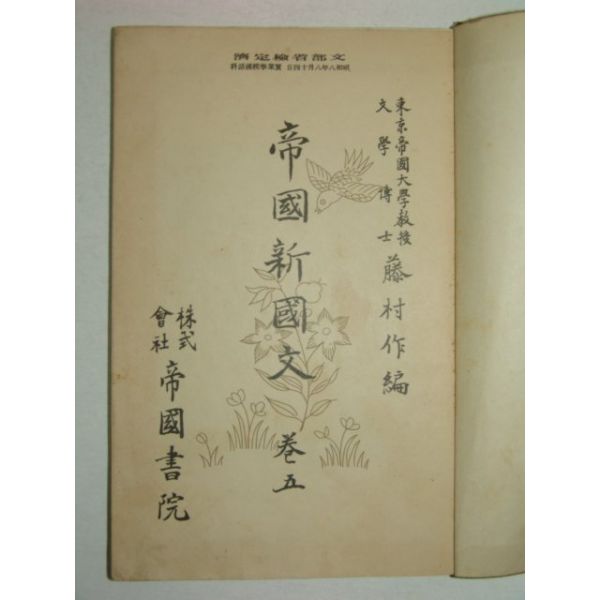 文部省檢定濟
昭和八年八月十四日 實業學校國語科
東京帝國大學教授
文學博士
藤村作編
帝國新國文 巻五
株式
會社
帝國書院